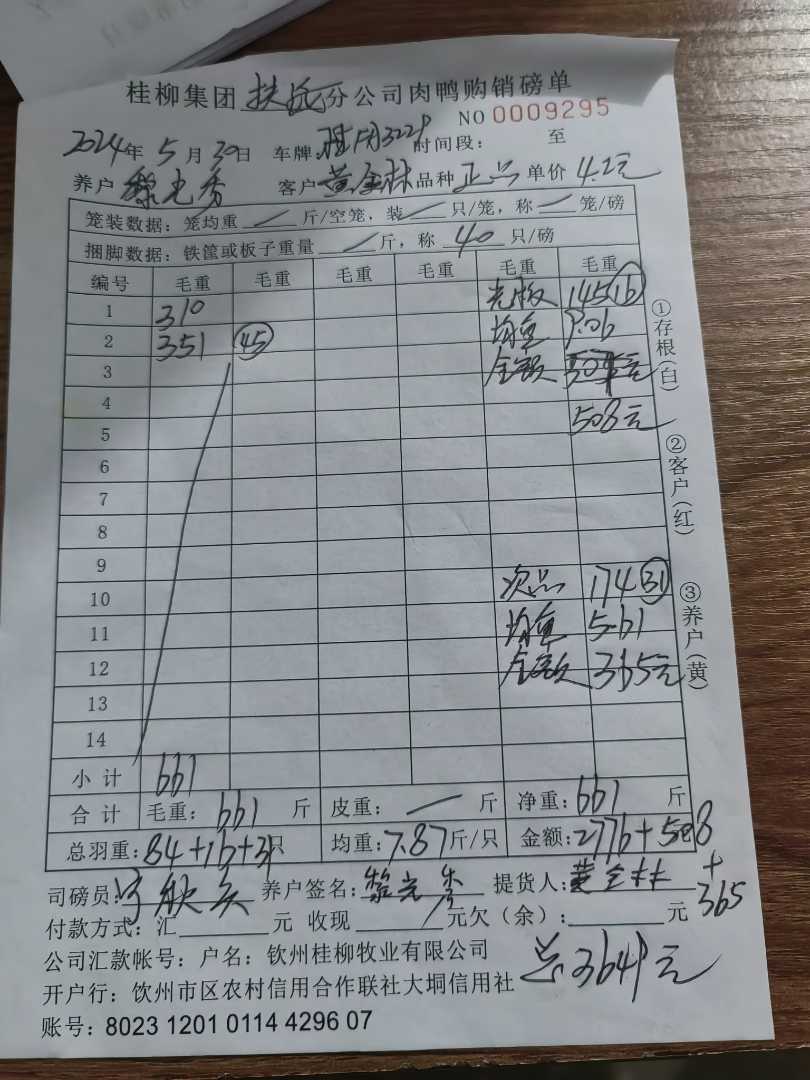 桂柳集团 分公司肉鸭购销磅单
NO 0009295
2024年 5月 30日 车牌 时间段: 至
养户 客户 黄金林 品种 正品 单价 4.2元
笼装数据: 笼均重 / 斤/空笼, 装 / 只/笼, 称 / 笼/磅
捆脚数据: 铁筐或板子重量 / 斤, 称 40 只/磅
编号 毛重 毛重 毛重 毛重 毛重 毛重
1 310 光板 145 16
2 351 45 均重 9.06
3 金额
4 508元
5
6
7
8
9
10 次品 174 31
11 均重 5.61
12 金额 365元
13
14
小计 661
合计 毛重: 661 斤 皮重: / 斤 净重: 661 斤
总羽重: 84+16+31只 均重: 7.87斤/只 金额: 2776+508
+365
司磅员: 养户签名: 提货人: 黄金林
付款方式: 汇 元 收现 元 欠(余): 元
总3649元
公司汇款帐号: 户名: 钦州桂柳牧业有限公司
开户行: 钦州市区农村信用合作联社大垌信用社
账号: 8023 1201 0114 4296 07
①存根(白)
②客户(红)
③养户(黄)